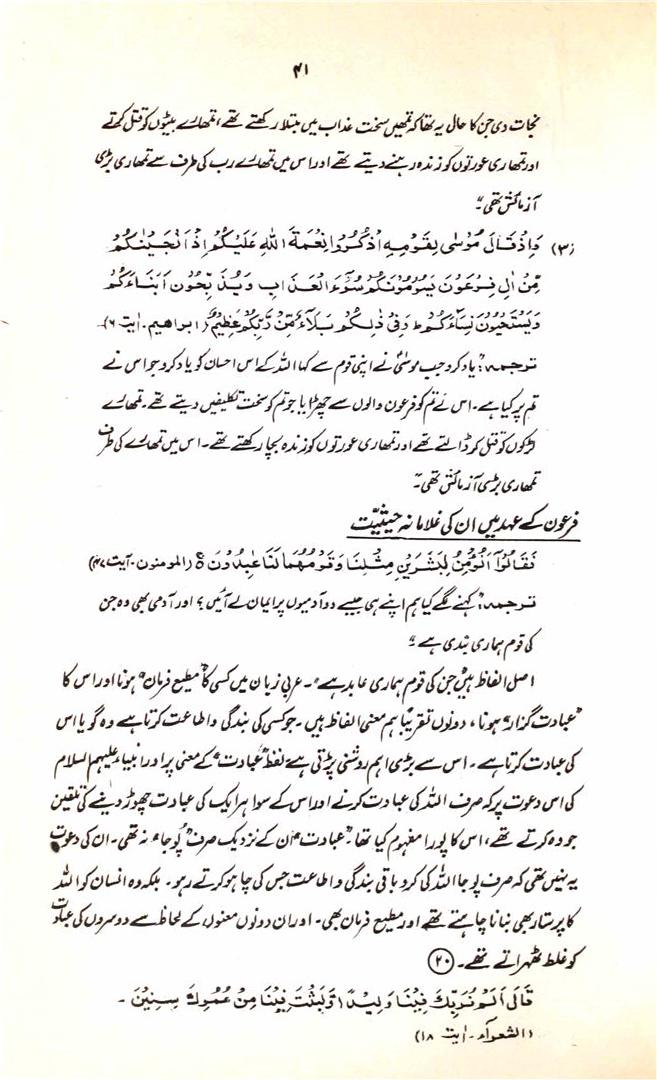 ۴۱
نجات دی جن کا حال یہ تھا کہ تمھیں سخت عذاب میں مبتلا رکھتے تھے، تمھارے بیٹوں کو قتل کرتے
اور تمھاری عورتوں کو زندہ رہنے دیتے تھے اور اس میں تمھارے رب کی طرف سے تمھاری بڑی
آزمائش تھی۔"
(۳) وَاِذْ قَالَ مُوْسٰى لِقَوْمِهِ اذْكُرُوْا نِعْمَةَ اللّٰهِ عَلَيْكُمْ اِذْ اَنْجٰىكُمْ
مِّنْ اٰلِ فِرْعَوْنَ يَسُوْمُوْنَكُمْ سُوْٓءَ الْعَذَابِ وَيُذَبِّحُوْنَ اَبْنَآءَكُمْ
وَيَسْتَحْيُوْنَ نِسَآءَكُمْ ط وَفِيْ ذٰلِكُمْ بَلَآءٌ مِّنْ رَّبِّكُمْ عَظِيْمٌ (ابراھیم۔ اٰیت ۶)۔
ترجمہ:" یاد کرو جب موسیٰؑ نے اپنی قوم سے کہا اللہ کے اس احسان کو یاد کرو جو اس نے
تم پر کیا ہے۔ اس نے تم کو فرعون والوں سے چھڑایا جو تم کو سخت تکلیفیں دیتے تھے۔ تمھارے
لڑکوں کو قتل کر ڈالتے تھے اور تمھاری عورتوں کو زندہ بچا رکھتے تھے۔ اس میں تمھارے کی طرف
تمھاری بڑی آزمائش تھی۔"
فرعون کے عہد میں ان کی غلامانہ حیثیت
فَقَالُوْٓا اَنُؤْمِنُ لِبَشَرَيْنِ مِثْلِنَا وَقَوْمُهُمَا لَنَا عٰبِدُوْنَ ۚ (المومنون۔ آیت ۴۷)
ترجمہ:" کہنے لگے کیا ہم اپنے ہی جیسے دو آدمیوں پر ایمان لے آئیں؟ اور آدمی بھی وہ جن
کی قوم ہماری بندی ہے"
اصل الفاظ ہیں" جن کی قوم ہماری عابد ہے"۔ عربی زبان میں کسی کا" مطیع فرمان" ہونا اور اس کا
"عبادت گزار" ہونا، دونوں تقریباً ہم معنی الفاظ ہیں۔ جو کسی کی بندگی و اطاعت کرتا ہے وہ گویا اس
کی عبادت کرتا ہے۔ اس سے بڑی اہم روشنی پڑتی ہے لفظ" عبادت" کے معنی پر اور انبیاء علیہم السلام
کی اس دعوت پر کہ صرف اللہ کی عبادت کرنے اور اس کے سوا ہر ایک کی عبادت چھوڑ دینے کی تلقین
جو وہ کرتے تھے، اس کا پورا مفہوم کیا تھا۔ "عبادت" ان کے نزدیک صرف" پوجا" نہ تھی۔ ان کی دعوت
یہ نہیں تھی کہ صرف پوجا اللہ کی کرو باقی بندگی و اطاعت جس کی چاہو کرتے رہو۔ بلکہ وہ انسان کو اللہ
کا پرستار بھی بنانا چاہتے تھے اور مطیع فرمان بھی۔ اور ان دونوں معنوں کے لحاظ سے دوسروں کی عبادت
کو غلط ٹھہراتے تھے۔ (۲۰)
قَالَ اَلَمْ نُرَبِّكَ فِيْنَا وَلِيْدًا وَّلَبِثْتَ فِيْنَا مِنْ عُمُرِكَ سِنِيْنَ ۔
(الشعرآء۔ اٰیت ۱۸)